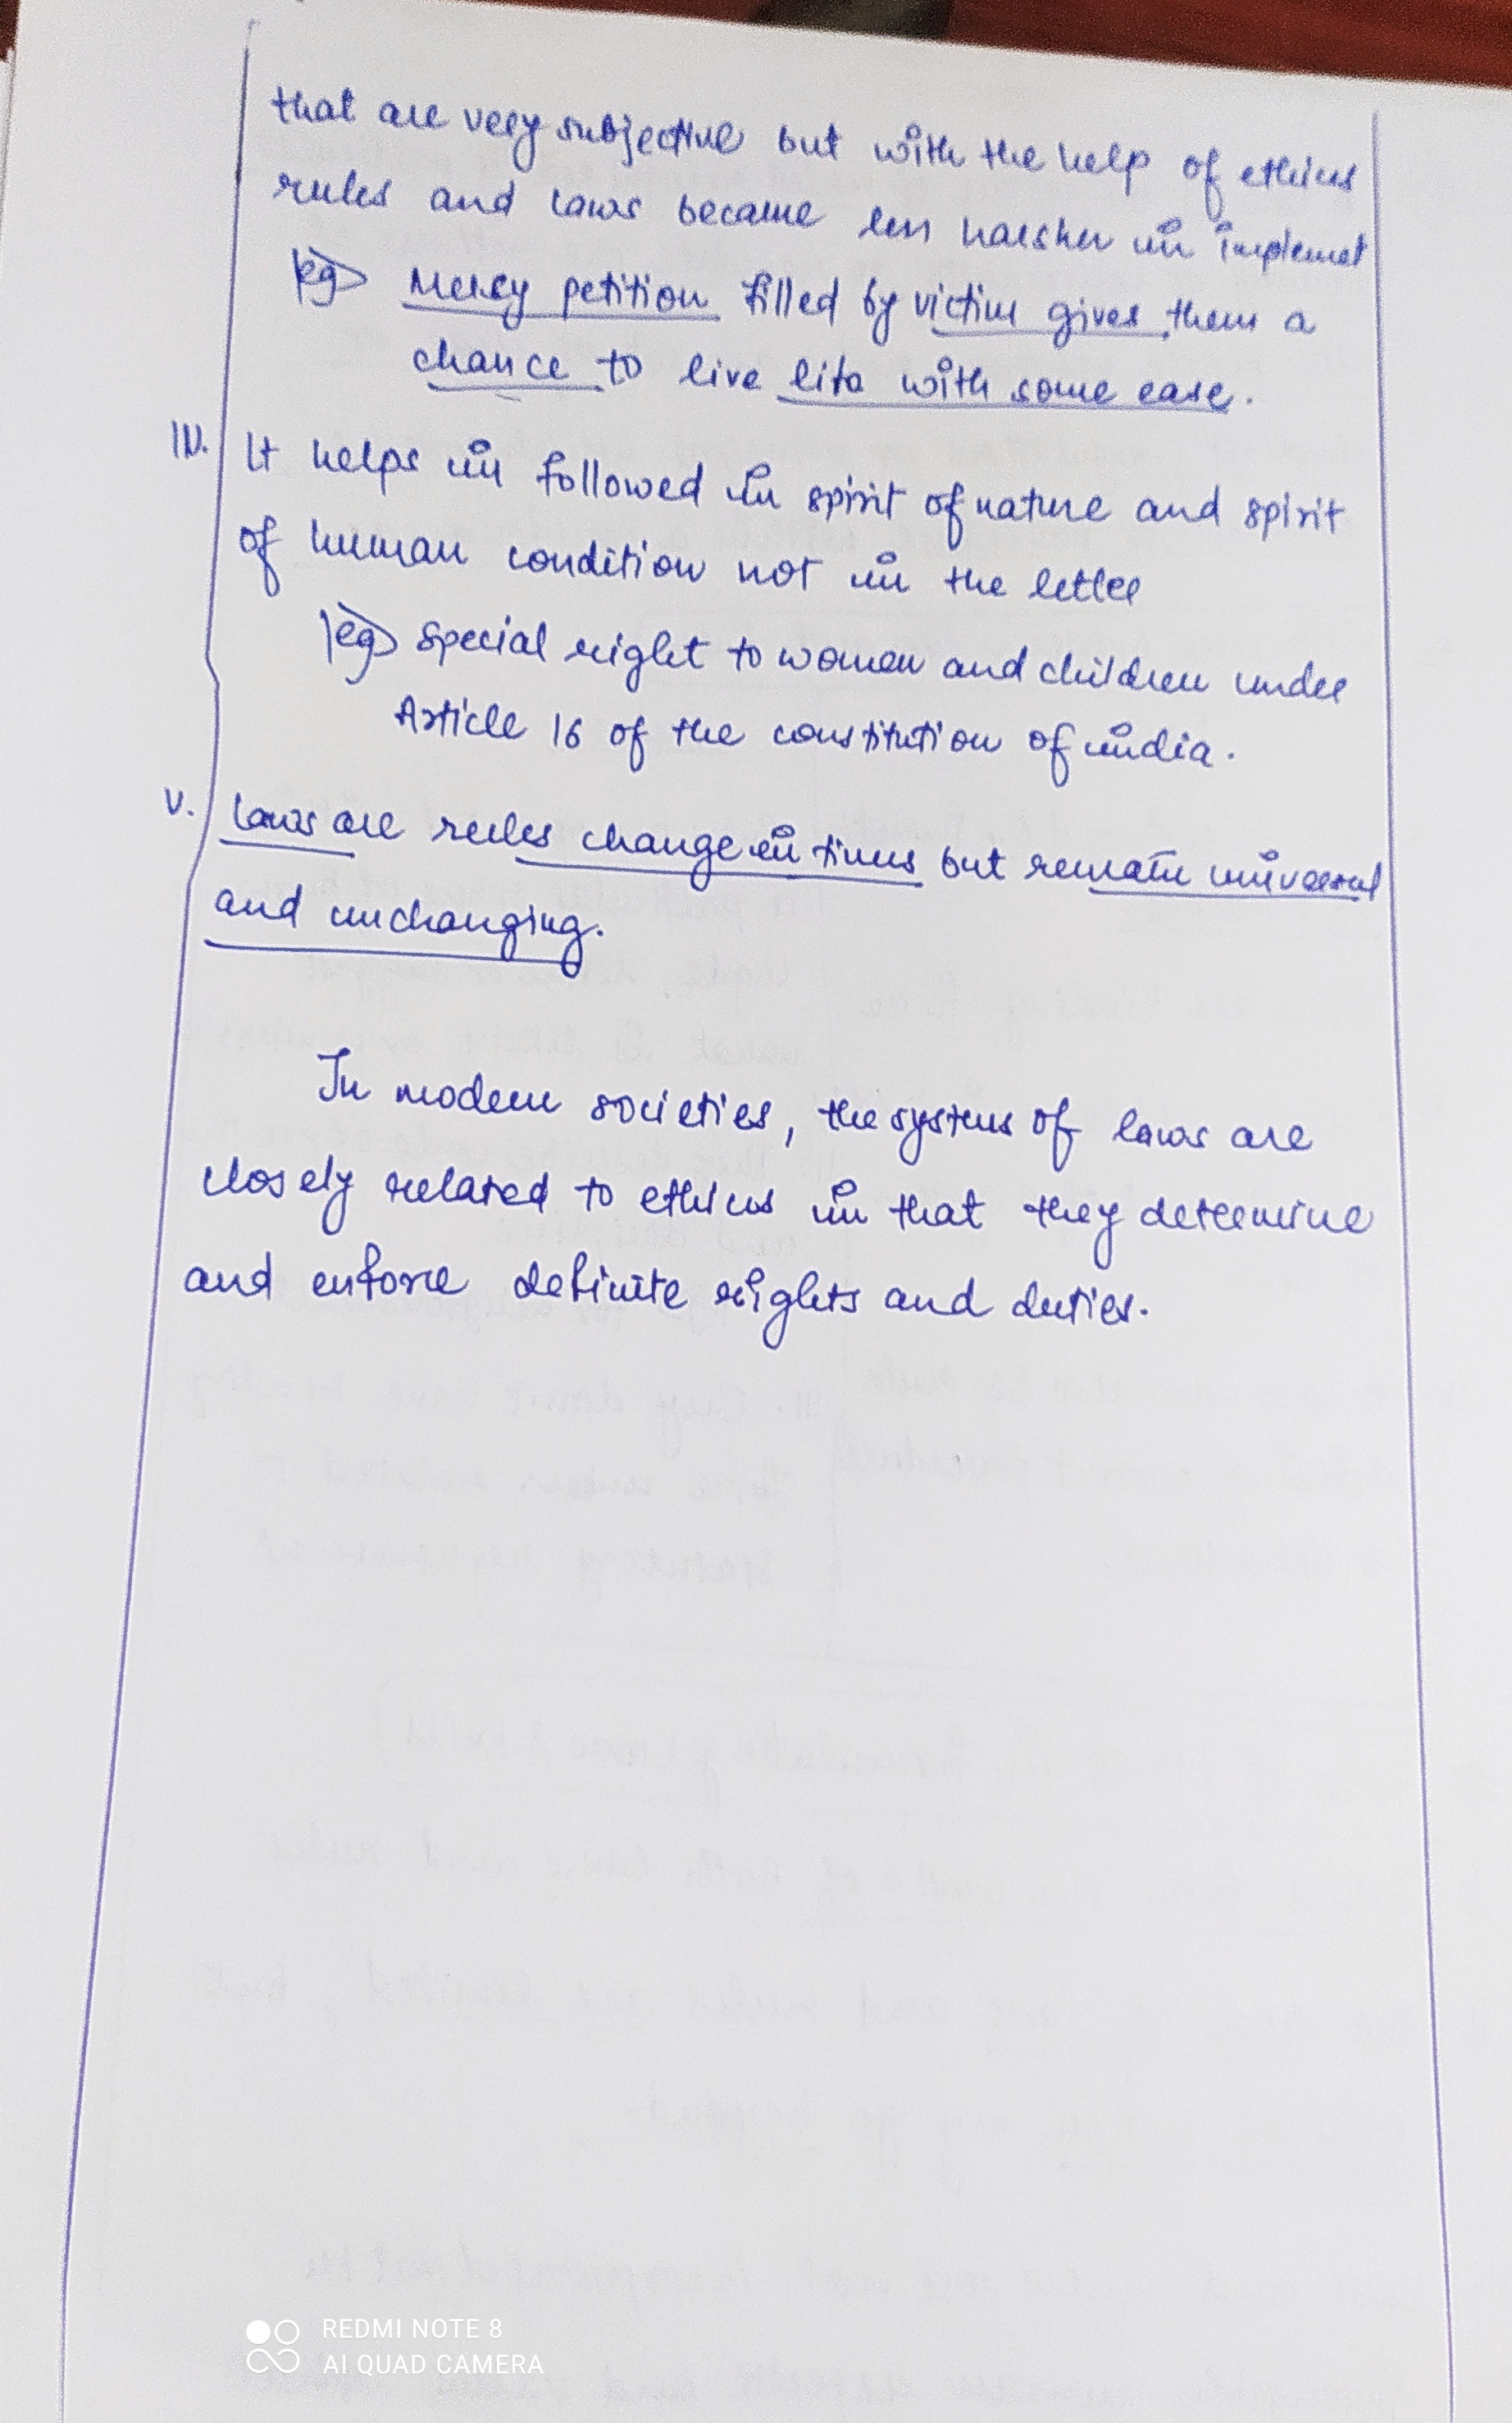 that are very subjective but with the help of ethics
rules and laws became less harsher in implemet
eg> Mercy petition filled by victim gives them a
chance to live life with some ease.
IV. It helps in followed in spirit of nature and spirit
of human condition not in the letter
eg> special right to women and children under
Article 16 of the constitution of india.
V. laws are rules change in times but remain universal
and unchanging.
In modern societies, the systems of laws are
closely related to ethics in that they determine
and enforce definite rights and duties.
REDMI NOTE 8
AI QUAD CAMERA